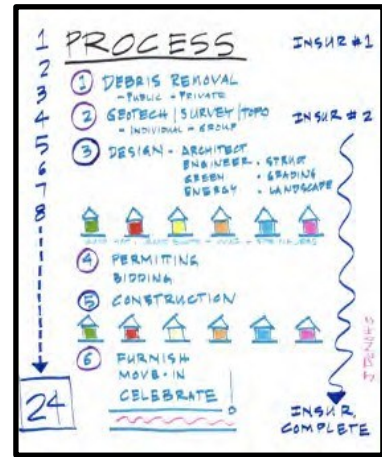 1 PROCESS INSUR #1
2
3 ① DEBRIS REMOVAL
- PUBLIC - PRIVATE
4 ② GEOTECH | SURVEY | TOPO INSUR # 2
- INDIVIDUAL - GROUP
5 ③ DESIGN - ARCHITECT
6 ENGINEER - STRUCT
GREEN - GRADING
7 ENERGY - LANDSCAPE
8
④ PERMITTING
BIDDING
⑤ CONSTRUCTION
⑥ FURNISH
MOVE-IN
CELEBRATE!
24
INSUR.
COMPLETE